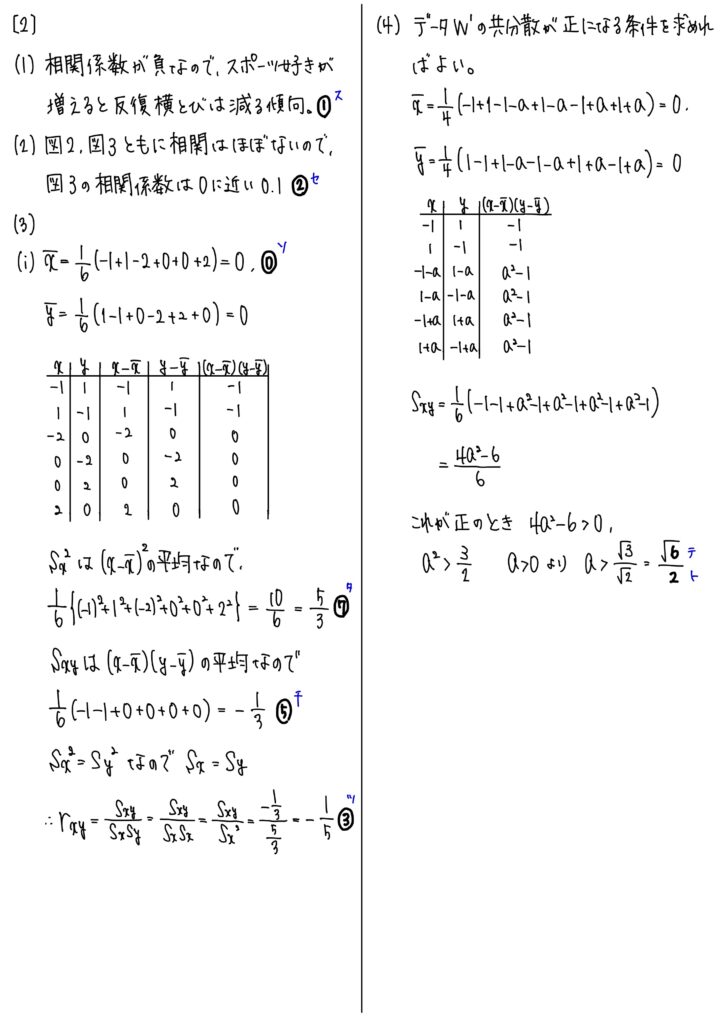 [2]
(1) 相関係数が負なので、スポーツ好きが
増えると反復横とびは減る傾向。① ス
(2) 図2、図3ともに相関はほぼないので、
図3の相関係数は0に近い 0.1 ② セ
(3)
(i) x̄ = 1/6 (-1+1-2+0+0+2) = 0. ⓪ ソ
ȳ = 1/6 (1-1+0-2+2+0) = 0
x | y | x-x̄ | y-ȳ | (x-x̄)(y-ȳ)
-1 | 1 | -1 | 1 | -1
1 | -1 | 1 | -1 | -1
-2 | 0 | -2 | 0 | 0
0 | -2 | 0 | -2 | 0
0 | 2 | 0 | 2 | 0
2 | 0 | 2 | 0 | 0
Sx² は (x-x̄)² の平均なので、
1/6 {(-1)²+1²+(-2)²+0²+0²+2²} = 10/6 = 5/3 ⑦ タ
Sxy は (x-x̄)(y-ȳ) の平均なので
1/6 (-1-1+0+0+0+0) = -1/3 ⑤ チ
Sx² = Sy² なので Sx = Sy
∴ rxy = Sxy/SxSy = Sxy/SxSx = Sxy/Sx² = (-1/3)/(5/3) = -1/5 ③ ツ
(4) データW'の共分散が正になる条件を求めれ
ばよい。
x̄ = 1/4 (-1+1-1-a+1-a-1+a+1+a) = 0.
ȳ = 1/4 (1-1+1-a-1-a+1+a-1+a) = 0
x | y | (x-x̄)(y-ȳ)
-1 | 1 | -1
1 | -1 | -1
-1-a | 1-a | a²-1
1-a | -1-a | a²-1
-1+a | 1+a | a²-1
1+a | -1+a | a²-1
Sxy = 1/6 (-1-1+a²-1+a²-1+a²-1+a²-1)
= (4a²-6)/6
これが正のとき 4a²-6>0,
a² > 3/2 a>0 より a > √3/√2 = √6/2 テ ト